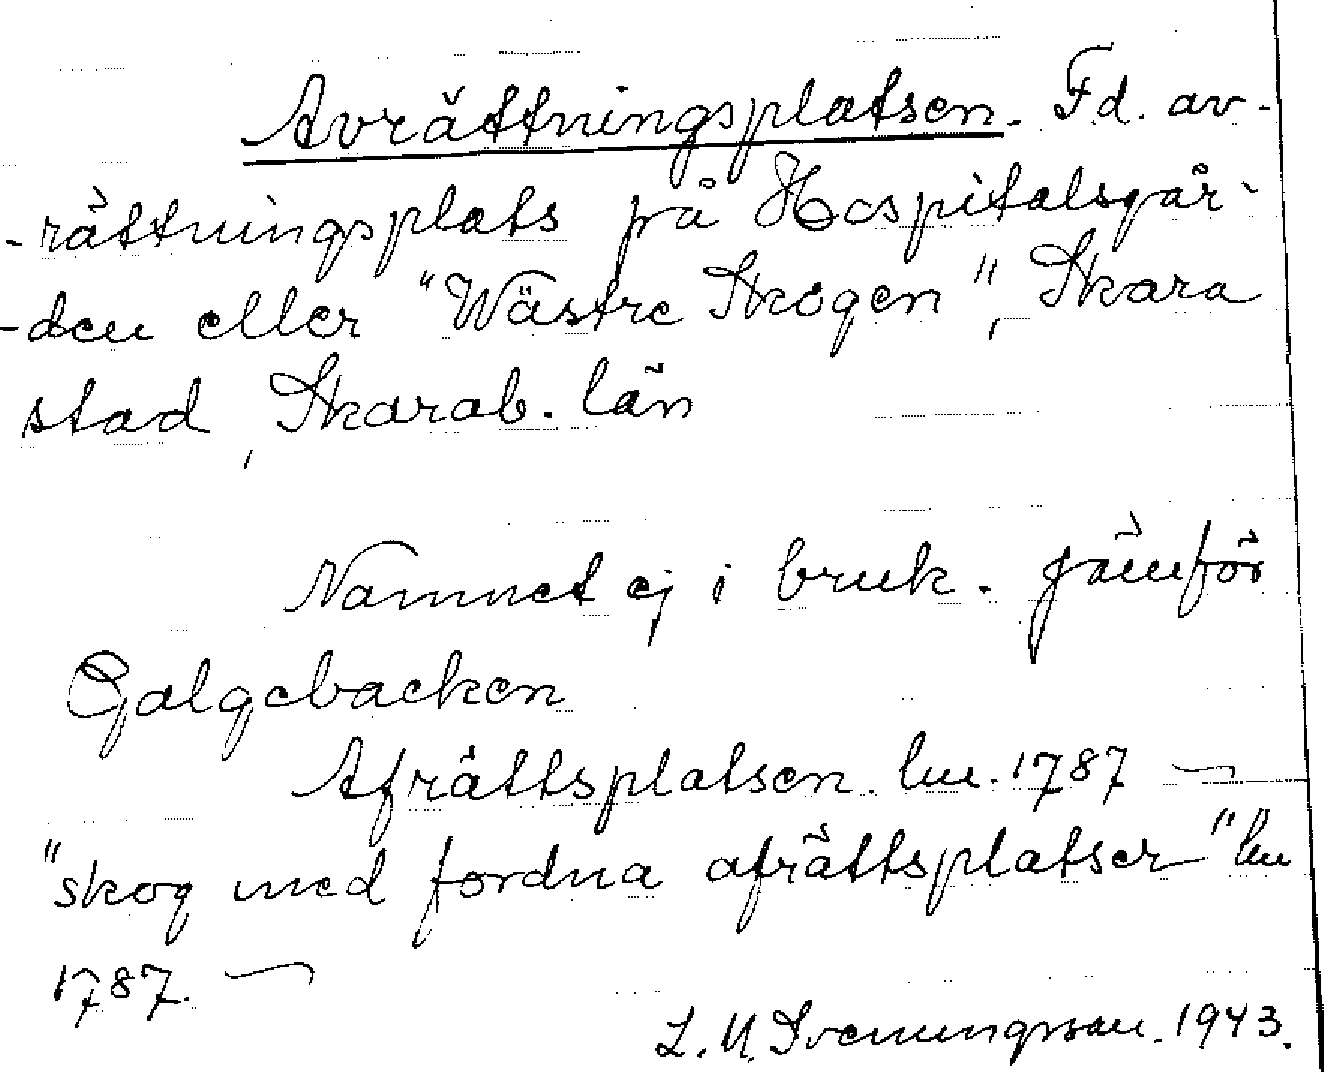 Avrättningsplatsen. Fd. av-
-rättningsplats på Hospitalsgår-
-den eller "Wästre Skogen", Skara
stad, Skarab. län
Namnet ej i bruk. Jämför
Galgebacken
Afrättsplatsen. lm. 1787 —
"skog med fordna afrättsplatser" lm
1787. —
L. U. Svenungsson. 1943.